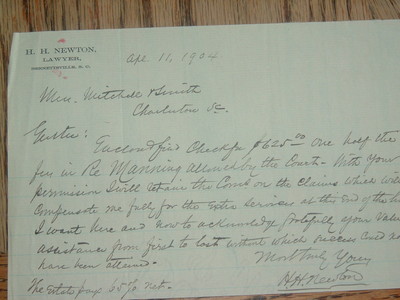 H. H. NEWTON,
LAWYER,
BENNETTSVILLE, S. C.
Apl 11, 1904
Mess. Mitchell & Smith
Charleston Sc
Gents: Enclosed find Check for $625.00 one half the
fee in Re Manning allowed by the Court. With your
permission I will retain the Coms on the claims which will
compensate me fully for the extra services at the end of the line
I want here and now to acknowledge gratefully your valued
assistance from first to last without which success could not
have been attained.
Most truly Yours
H.H. Newton
The state pays 65% net.